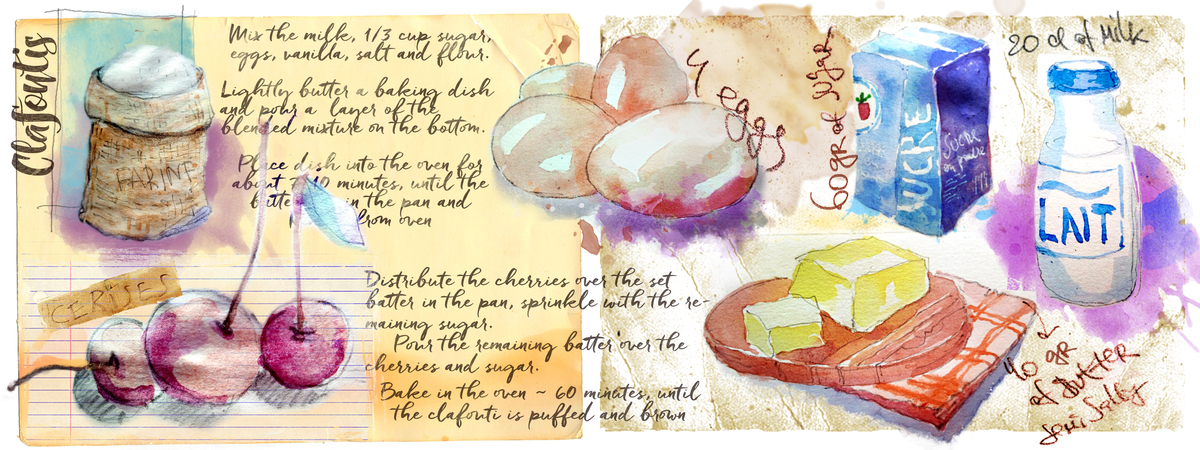 Clafoutis
Mix the milk, 1/3 cup sugar,
eggs, vanilla, salt and flour.
Lightly butter a baking dish
and pour a layer of the
blended mixture on the bottom.
Place dish into the oven for
about 10 minutes, until the
in the pan and
from oven
FARINE
CERISES
Distribute the cherries over the set
batter in the pan, sprinkle with the re-
maining sugar.
Pour the remaining batter over the
cherries and sugar.
Bake in the oven ~ 60 minutes, until
the clafouti is puffed and brown
4 eggs
60gr of sugar
SUCRE
Sucre
en poudre
20 cl of Milk
LAIT
gr
of Butter